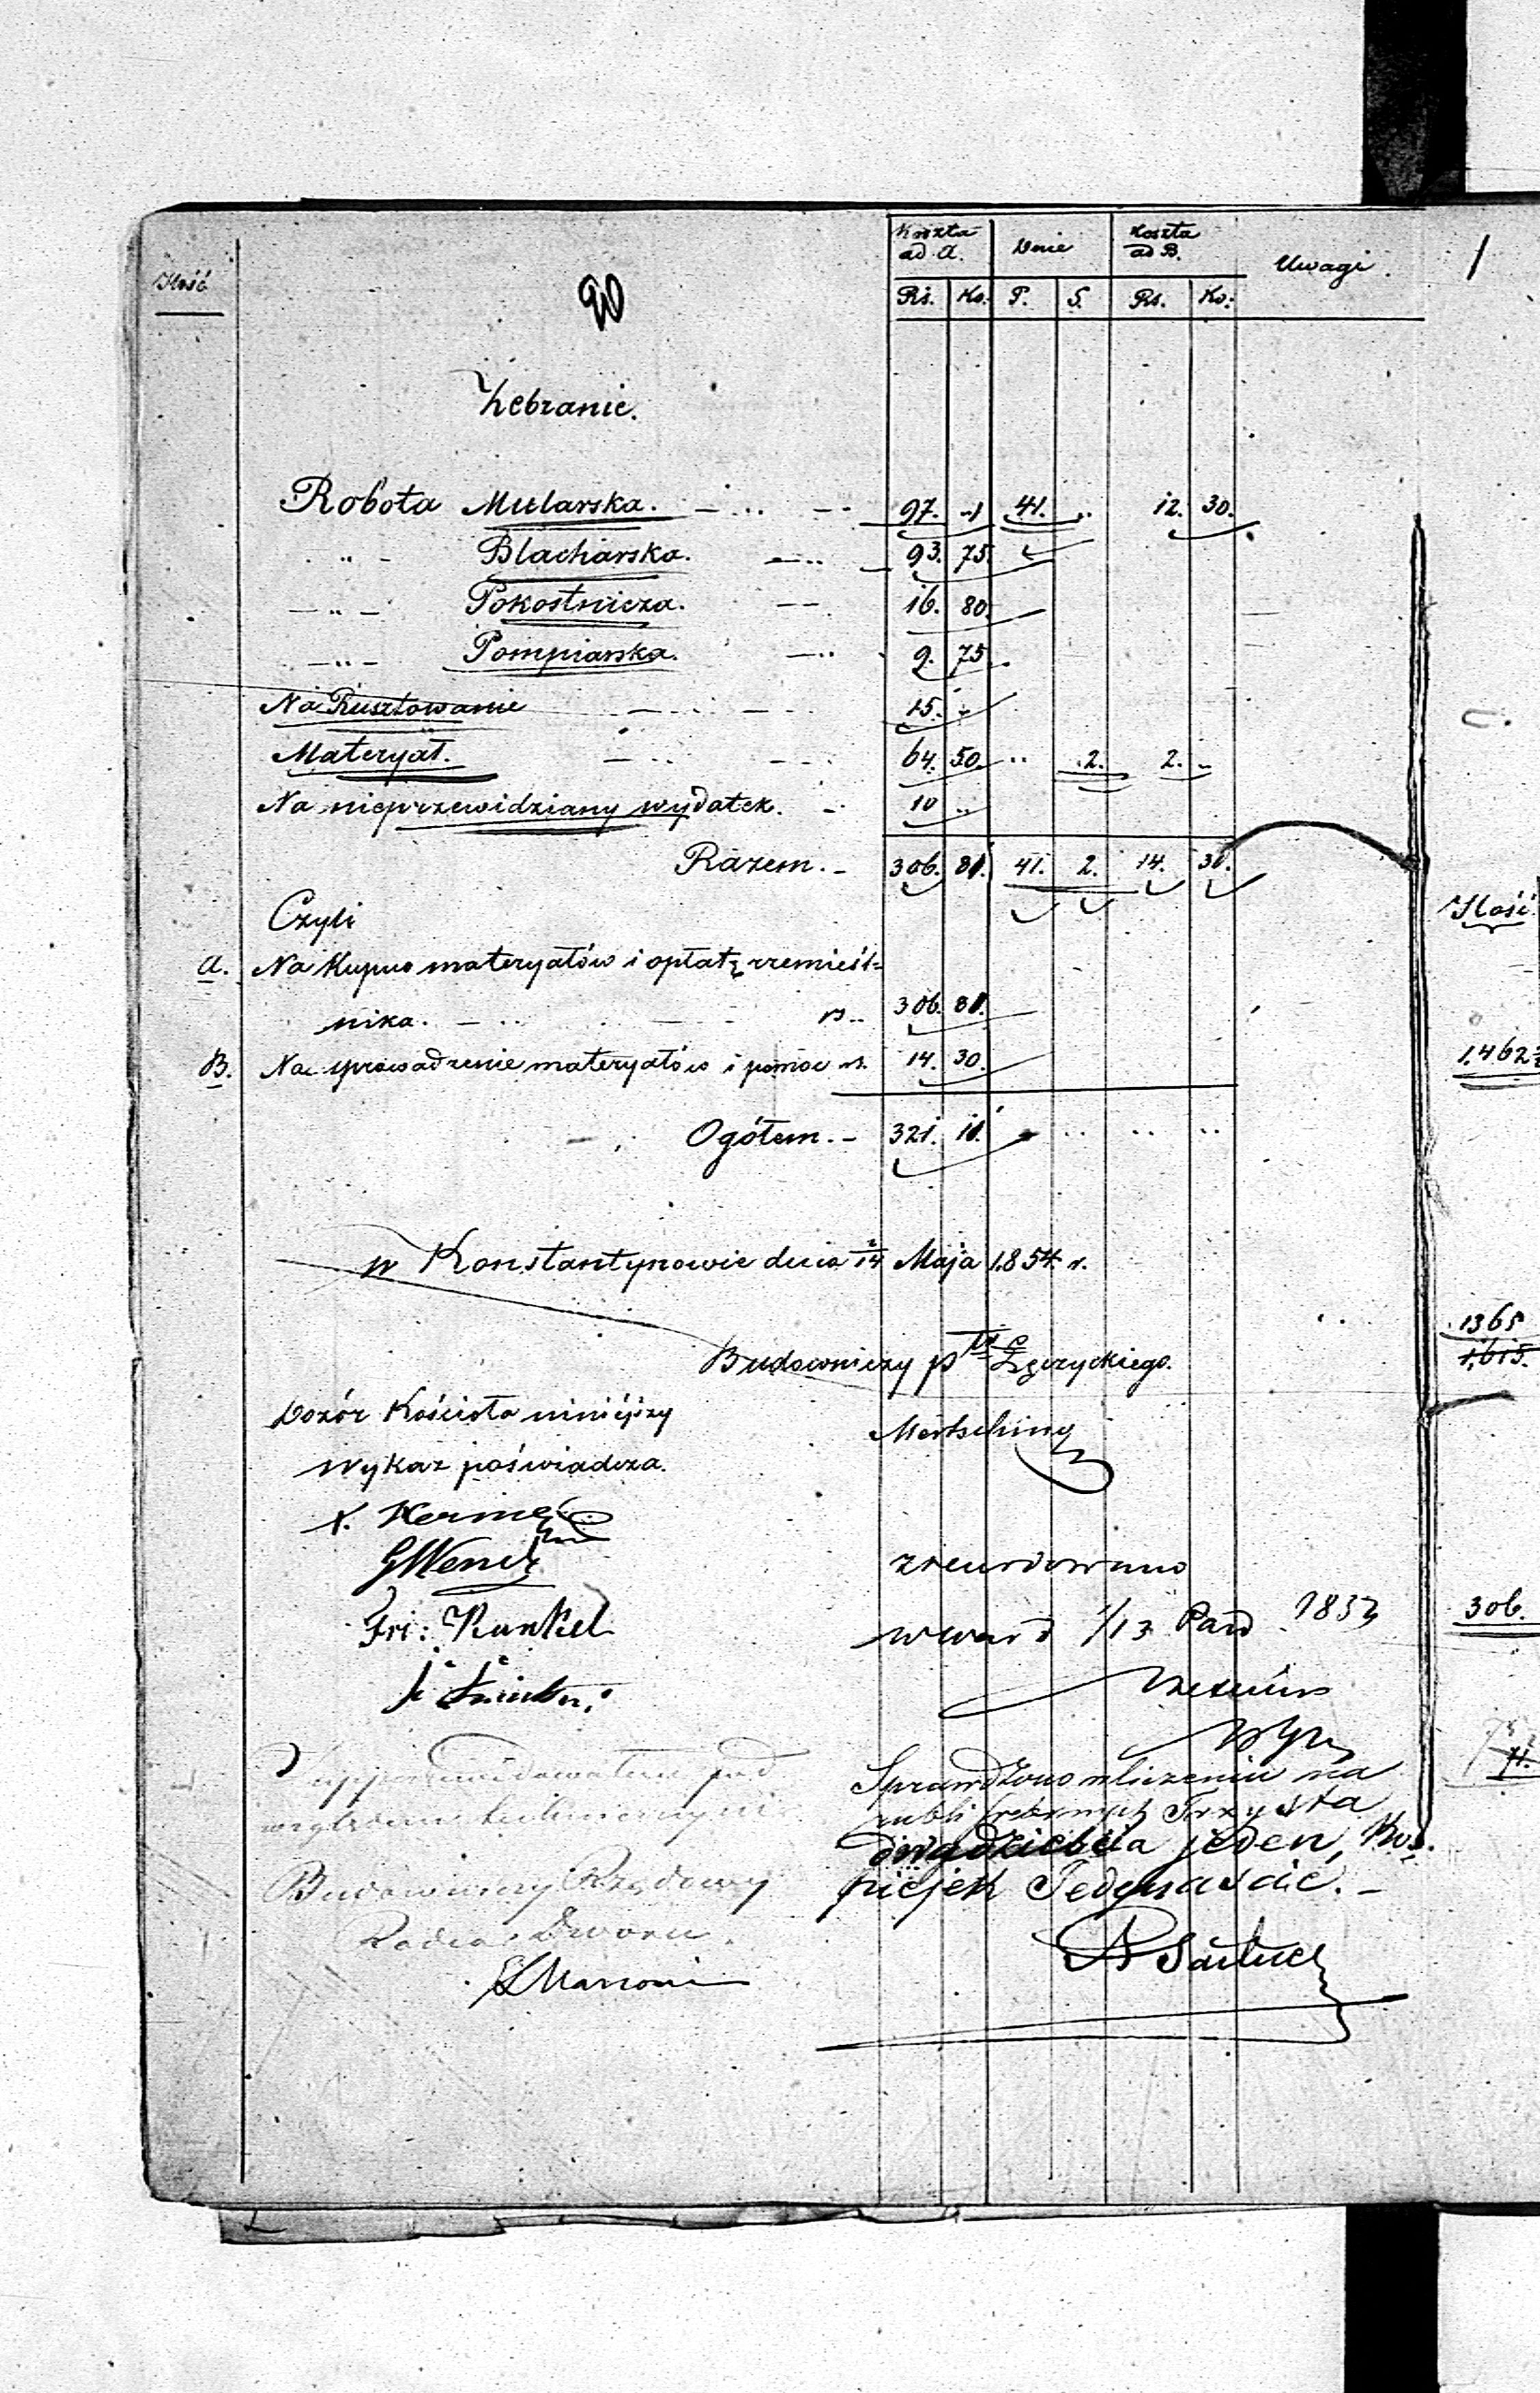 Ilość
20
Koszta ad A. Dnie Koszta ad B. Uwagi.
Rs. Ko. P. S. Rs. Ko:
Zebranie.
Robota Mularska. 97. -1 41. .. 12. 30.
" Blacharska. 93. 75.
" Pokostnicza. 16. 80
" Pompiarska. 9. 75
Na Rusztowanie 15. -
Materyał. 64. 50. .. 2. 2. -
Na nieprzewidziany wydatek. 10 ..
Razem. - 306. 81. 41. 2. 14. 30.
Czyli
A. Na kupno materyałów i opłatę rzemieśl=
nika. rs. 306. 81.
B. Na sprowadzenie materyałów i pomoc rs. 14. 30.
Ogółem. - 321. 11. .. .. ..
w Konstantynowie dnia 2/14 Maja 1854 r.
Budowniczy ptu Łęczyckiego.
Mertsching
Dozór Kościoła niniéjszy
Wykaz poświadcza.
GWende
Fri: Kunkel
zrewidowano
1/13 Paźd
Sprawdzono w liczeniu na
rubli srebrnych Trzysta
dwadzieścia jeden, Ko=
piejek Jedenaście. -
pod
względem technicznym
Budowniczy Rządowy
Radca Dworu
Marconi
Ilość
1365
1,615.
306.